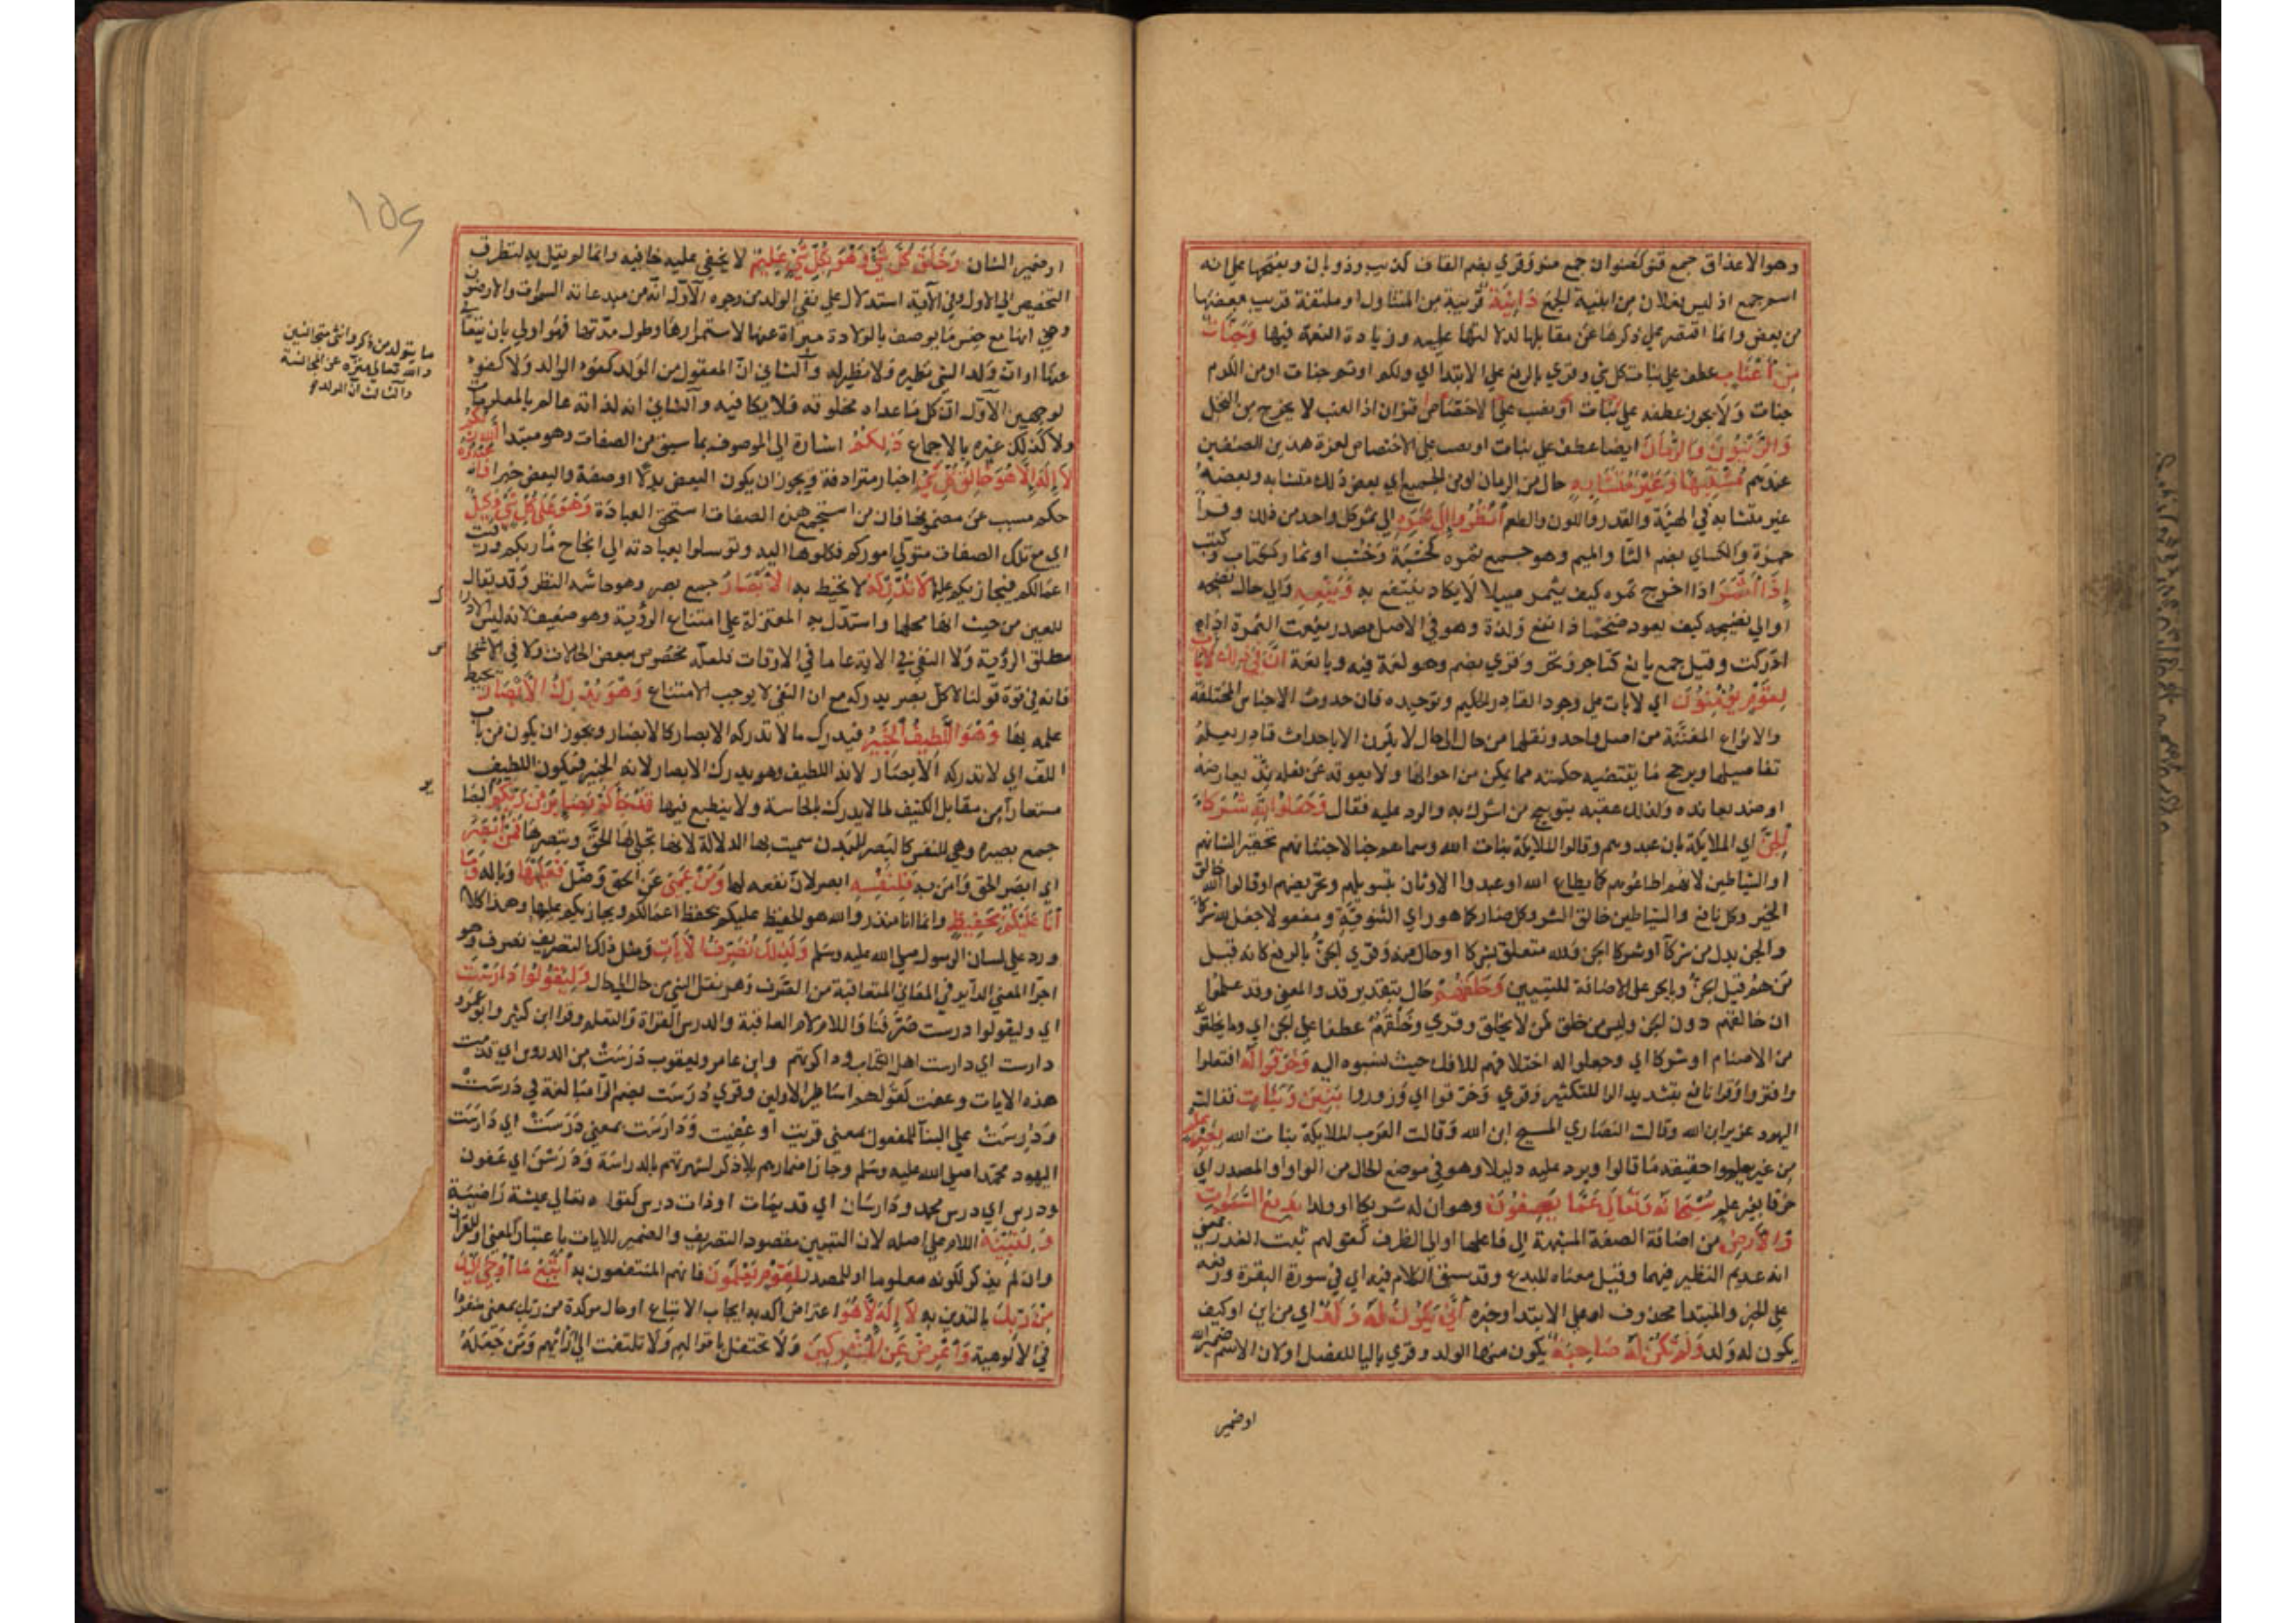 وهو الاعذاق جمع قنو كصنوان جمع صنو وقري بضم القاف كذيب وذوبان وبفتحها على انه
اسم جمع اذ ليس فعلان من ابنية الجمع دَانِيَة قريبة من المتناول او ملتفة قريب بعضها
من بعض وانما اقتصر على ذكرها عن مقابلها لدلالتها عليه وزيادة النعمة فيها وَجَنَّات
مِنْ أَعْنَابٍ عطف على نبات كل شي وقري بالرفع على الابتدا اي ولكم او ثم جنات او من الكرم
جنات ولا يجوز عطفه على قنوان اذ العنب لا يخرج من النخل
وَالزَّيْتُونَ وَالرُّمَّانَ ايضا عطف على نبات او نصب على الاختصاص لعزة هذين الصنفين
عندهم مُشْتَبِهًا وَغَيْرَ مُتَشَابِهٍ حال من الرمان او من الجميع اي بعض ذلك متشابه وبعضه
غير متشابه في الهيئة والقدر واللون والطعم أنْظُرُوا إِلَى ثَمَرِهِ الى ثمر كل واحد من ذلك وقرا
حمزة والكساي بضم الثا والميم وهو جمع ثمره كخشبة وخشب او ثمار ككتاب وكتب
إِذَا أَثْمَرَ اذا اخرج ثمره كيف يثمر ضييلا لا يكاد ينتفع به وَيَنْعِهِ والى حال نضجه
او الى نضيجه كيف يعود ضخما ذا نفع ولذة وهو في الاصل مصدر ينعت الثمرة اذا
ادركت وقيل جمع يانع كتاجر وتجر وقري بضم وهو لغة فيه ويانعة انَّ فِي ذَلِكَ لَآيَات
لِقَوْمٍ يُؤْمِنُونَ اي لايات على وجود القادر الحكيم وتوحيده فان حدوث الاجناس المختلفة
والانواع المفتنة من اصل واحد ونقلها من حال الى حال لا يكون الا باحداث قادر يعلم
تفاصيلها ويرجح ما يقتضيه حكمته مما يمكن من احوالها ولا يعوقه عن فعله ند يعارضه
او ضد يعانده ولذلك عقبه بتوبيخ من اشرك به والرد عليه فقال وَجَعَلُوا لِلَّهِ شُرَكَاءَ
الْجِنَّ اي الملايكة بان عبدوهم وقالوا الملايكة بنات الله وسماهم جنا لاجتنانهم تحقيرا لشانهم
او الشياطين لانهم اطاعوهم كما يطاع الله او عبدوا الاوثان بتسويلهم وتحريضهم او قالوا الله خالق
الخير وكل نافع والشياطين خالق الشر وكل ضار كما هو راي الثنوية ومفعولا جعل لله شركا
والجن بدل من شركا او شركا الجن ولله متعلق بشركا او حال منه وقري الجن بالرفع كانه قيل
من هم فقيل الجن وبالجر على الاضافة للتبيين وَخَلَقَهُمْ حال بتقدير قد والمعنى وقد علموا
ان خالقهم دون الجن وليس من خلق كمن لا يخلق وقري وخَلْقَهُم عطفا على الجن اي وما يخلقو
من الاصنام او شركا اي وجعلوا له اختلاقهم للافك حيث نسبوه اليه وَخَرَقُوا لَهُ افتعلوا
وافتروا وقرا نافع بتشديد الرا للتكثير وقري وحرّفوا اي وزوروا بَنِينَ وَبَنَاتٍ فقالت
اليهود عزير ابن الله وقالت النصاري المسيح ابن الله وقالت العرب الملايكة بنات الله بِغَيْرِ عِلْمٍ
من غير ان يعلموا حقيقة ما قالوا ويرد عليه دليلا وهو في موضع الحال من الواو او المصدر اي
خرقا بغير علم سُبْحَانَهُ وَتَعَالَى عَمَّا يَصِفُونَ وهو ان له شريكا او ولدا بَدِيعُ السَّمَوَاتِ
وَالْأَرْضِ من اضافة الصفة المشبهة الى فاعلها او الى الظرف كقولهم ثبت الغدر بمعنى
انه عديم النظير فيهما وقيل معناه المبدع وقد سبق الكلام فيه اي في سورة البقرة ورفعه
على الخبر والمبتدا محذوف او على الابتدا وخبره أَنَّى يَكُونُ لَهُ وَلَدٌ اي من اين او كيف
يكون له ولد وَلَمْ تَكُنْ لَهُ صَاحِبَةٌ يكون منها الولد وقري باليا للفصل او لان الاسم ضمير الله
او ضمير
او ضمير الشان وَخَلَقَ كُلَّ شَيْءٍ وَهُوَ بِكُلِّ شَيْءٍ عَلِيمٌ لا يخفى عليه خافيه وانما لم يقل به لتطرق
التخصيص الى الاول وفي الآية استدلال على نفي الولد من وجوه الاول انه من مبدعاته السموات والارضون
وهي انها مع جنس ما يوصف بالولادة مبراة عنها لاستمرارها وطول مدتها فهو اولى بان يتعالى
عنها او ان ولد الشي نظيره ولا نظير له والثاني ان المعقول من الولد كفوء الوالد ولا كفوء
لوجهين الاول انه كل ما عداه مخلوقه فلا يكافيه والثاني انه لذاته عالم بالمعلومات
ولا كذلك غيره بالاجماع ذَلِكُمُ اشارة الى الموصوف بما سبق من الصفات وهو مبتدا اللَّهُ رَبُّكُمْ
لَا إِلَهَ إِلَّا هُوَ خَالِقُ كُلِّ شَيْءٍ اخبار مترادفة ويجوز ان يكون البعض بدلا او صفة والبعض خبرا فَاعْبُدُوهُ
حكم مسبب عن مضمونها فان من استجمع هذه الصفات استحق العبادة وَهُوَ عَلَى كُلِّ شَيْءٍ وَكِيلٌ
اي مع تلك الصفات متولي اموركم فكلوها اليه وتوسلوا بعبادته الى انجاح مآربكم ورقيب
اعمالكم فيجازيكم عليها لَا تُدْرِكُهُ لا تحيط به الْأَبْصَارُ جمع بصر وهو حاسة النظر وقد يقال
للعين من حيث انها محلها واستدل به المعتزلة على امتناع الرؤية وهو ضعيف لانه ليس الادراك
مطلق الرؤية ولا النفي في الاية عاما في الاوقات فلعله مخصوص ببعض الحالات ولا في الاشخاص
فانه في قوة قولنا لا كل بصر يدركه مع ان النفي لا يوجب الامتناع وَهُوَ يُدْرِكُ الْأَبْصَارَ يحيط
علمه بها وَهُوَ اللَّطِيفُ الْخَبِيرُ فيدرك ما لا تدركه الابصار كالابصار ويجوز ان يكون من باب
اللف اي لا تدركه الابصار لانه اللطيف وهو يدرك الابصار لانه الخبير فيكون اللطيف
مستعارا من مقابل الكثيف لما لا يدرك بالحاسة ولا ينطبع فيها قَدْ جَاءَكُمْ بَصَائِرُ مِنْ رَبِّكُمْ البصا
جمع بصيره وهي للنفس كالبصر للبدن سميت بها الدلالة لانها تجلي لها الحق وتبصرها فَمَنْ أَبْصَرَ
اي ابصر الحق وامن به فَلِنَفْسِهِ ابصر لان نفعه لها وَمَنْ عَمِيَ عن الحق وضل فَعَلَيْهَا وباله وَمَا
أَنَا عَلَيْكُمْ بِحَفِيظٍ وانما انا منذر والله هو الحفيظ عليكم يحفظ اعمالكم ويجازيكم عليها وهذا كلام
ورد على لسان الرسول صلى الله عليه وسلم وَكَذَلِكَ نُصَرِّفُ الْآيَاتِ ومثل ذلك التصريف نصرف وهو
اجرا المعنى الداير في المعاني المتعاقبة من الصرف وهو نقل الشي من حال الى حال وَلِيَقُولُوا دَارَسْتَ
اي وليقولوا درست صرفنا واللام لام العاقبة والدرس القراة والتعلم وقرا ابن كثير وابو عمرو
دارست اي دارست اهل الكتاب وذاكرتهم وابن عامر ويعقوب دَرَسَتْ من الدروس اي قدمت
هذه الايات وعفت كقولهم اساطير الاولين وقري دُرست بضم الرا مبالغة في دَرَسَتْ
ودُرِسَتْ على البنا للمفعول بمعنى قريت او عفيت ودارست بمعنى درست اي دارست
اليهود محمدا صلى الله عليه وسلم وجاز اضمارهم بلا ذكر لشهرتهم بالدراسة ودرسن اي عفون
ودرس اي درس محمد ودارسات اي قديمات او ذات درس كقوله تعالى عيشة راضية
وَلِنُبَيِّنَهُ اللام على اصله لان التبيين مقصود التصريف والضمير للايات باعتبار المعنى او للقرآن
وان لم يذكر لكونه معلوما او للمصدر لِقَوْمٍ يَعْلَمُونَ فانهم المنتفعون به اتَّبِعْ مَا أُوحِيَ إِلَيْكَ
مِنْ رَبِّكَ بالتدين به لَا إِلَهَ إِلَّا هُوَ اعتراض اكد به ايجاب الاتباع او حال موكدة من ربك بمعنى منفردا
في الالوهية وَأَعْرِضْ عَنِ الْمُشْرِكِينَ ولا تحتفل باقوالهم ولا تلتفت الى رائهم ومن جعله
ما يتولد من ذكر وانثى متجانسين
والله تعالى منزه عن المجانسة
والثالث ان الولد